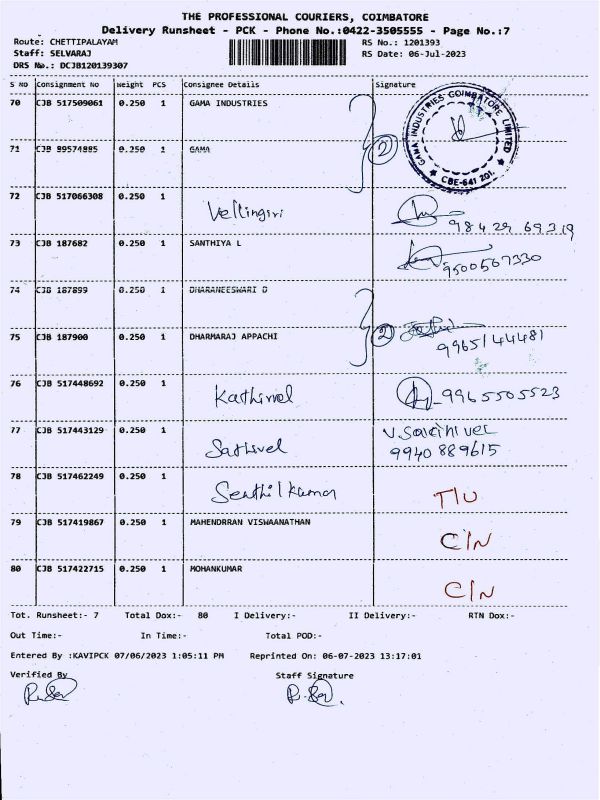 THE PROFESSIONAL COURIERS, COIMBATORE
Delivery Runsheet - PCK - Phone No.:0422-3505555 - Page No.:7
Route: CHETTIPALAYAM RS No.: 1201393
Staff: SELVARAJ RS Date: 06-Jul-2023
DRS No.: DCJB120139307
S NO Consignment No Weight PCS Consignee Details Signature
70 CJB 517509061 0.250 1 GAMA INDUSTRIES
GAMA INDUSTRIES COIMBATORE LIMITED
★ CBE-641 201. ★
71 CJB 99574885 0.250 1 GAMA 2
72 CJB 517066308 0.250 1 Vellingiri
98429 69319
73 CJB 187682 0.250 1 SANTHIYA L
9500567330
74 CJB 187899 0.250 1 DHARANEESWARI D
75 CJB 187900 0.250 1 DHARMARAJ APPACHI 2
9965144481
76 CJB 517448692 0.250 1 Kathirvel 9965505523
77 CJB 517443129 0.250 1 Sathivel V. Sakthivel
9940889615
78 CJB 517462249 0.250 1 Senthilkumar T/U
79 CJB 517419867 0.250 1 MAHENDRRAN VISWAANATHAN C/N
80 CJB 517422715 0.250 1 MOHANKUMAR C/N
Tot. Runsheet:- 7 Total Dox:- 80 I Delivery:- II Delivery:- RTN Dox:-
Out Time:- In Time:- Total POD:-
Entered By :KAVIPCK 07/06/2023 1:05:11 PM Reprinted On: 06-07-2023 13:17:01
Verified By Staff Signature